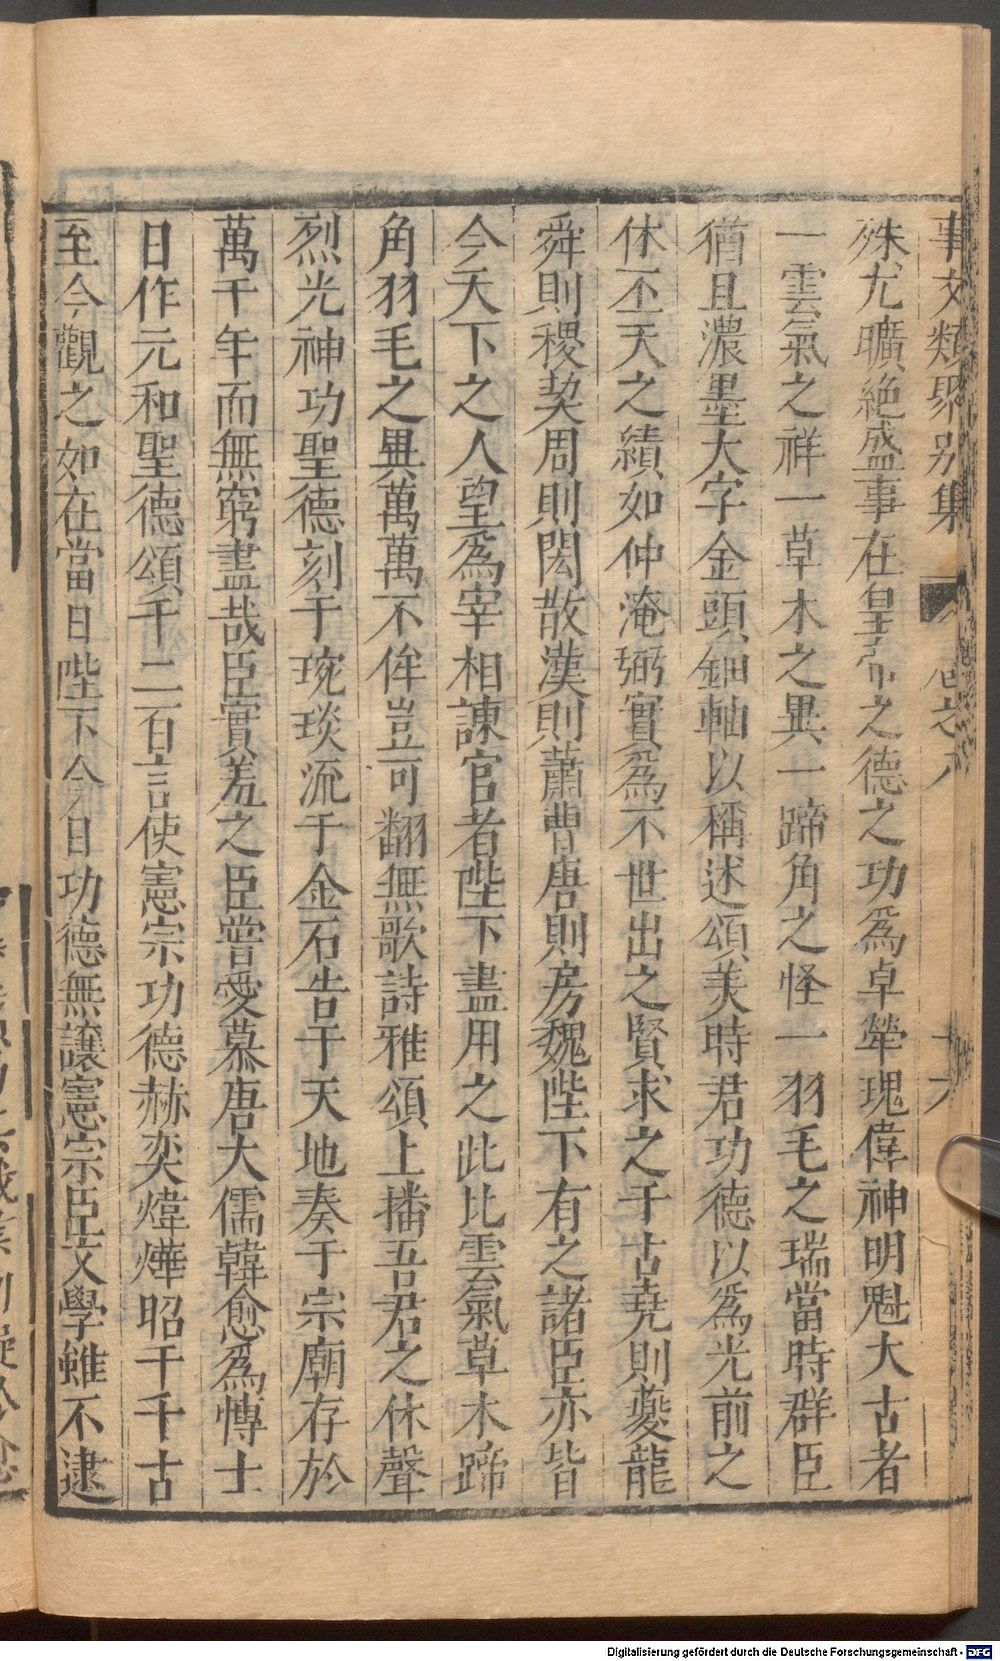 事文類聚別集 卷之八 十六
殊尤曠絶盛事在皇帝之德之功為卓犖瑰偉神明魁大古者
一雲氣之祥一草木之異一蹄角之怪一羽毛之瑞當時群臣
猶且濃墨大字金頭鈿軸以稱述頌美時君功德以為光前之
休丕天之績如仲淹弼實為不世出之賢求之于古堯則夔龍
舜則稷契周則閎散漢則蕭曹唐則房魏陛下有之諸臣亦皆
今天下之人望為宰相諫官者陛下盡用之此比雲氣草木蹄
角羽毛之異萬萬不侔豈可翻無歌詩雅頌上播吾君之休聲
烈光神功聖德刻于琬琰流于金石告于天地奏于宗廟存於
萬千年而無窮盡哉臣實羞之臣嘗愛慕唐大儒韓愈為博士
日作元和聖德頌千二百言使憲宗功德赫奕煒燁昭于千古
至今觀之如在當日陛下今日功德無讓憲宗臣文學雖不逮
Digitalisierung gefördert durch die Deutsche Forschungsgemeinschaft - DFG